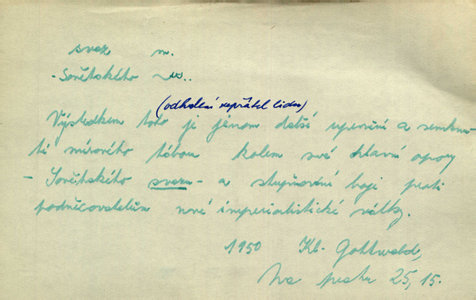 svaz m.
-Sovětského ~u..
(odhalení nepřátel lidu)
Výsledkem toho je jenom další upevnění a semknu-
tí mírového tábora kolem své hlavní opory
- Sovětského svazu - a stupňování boje proti
podněcovatelům nové imperialistické války.
1950 Kl. Gottwald,
Na prahu 25, 15.